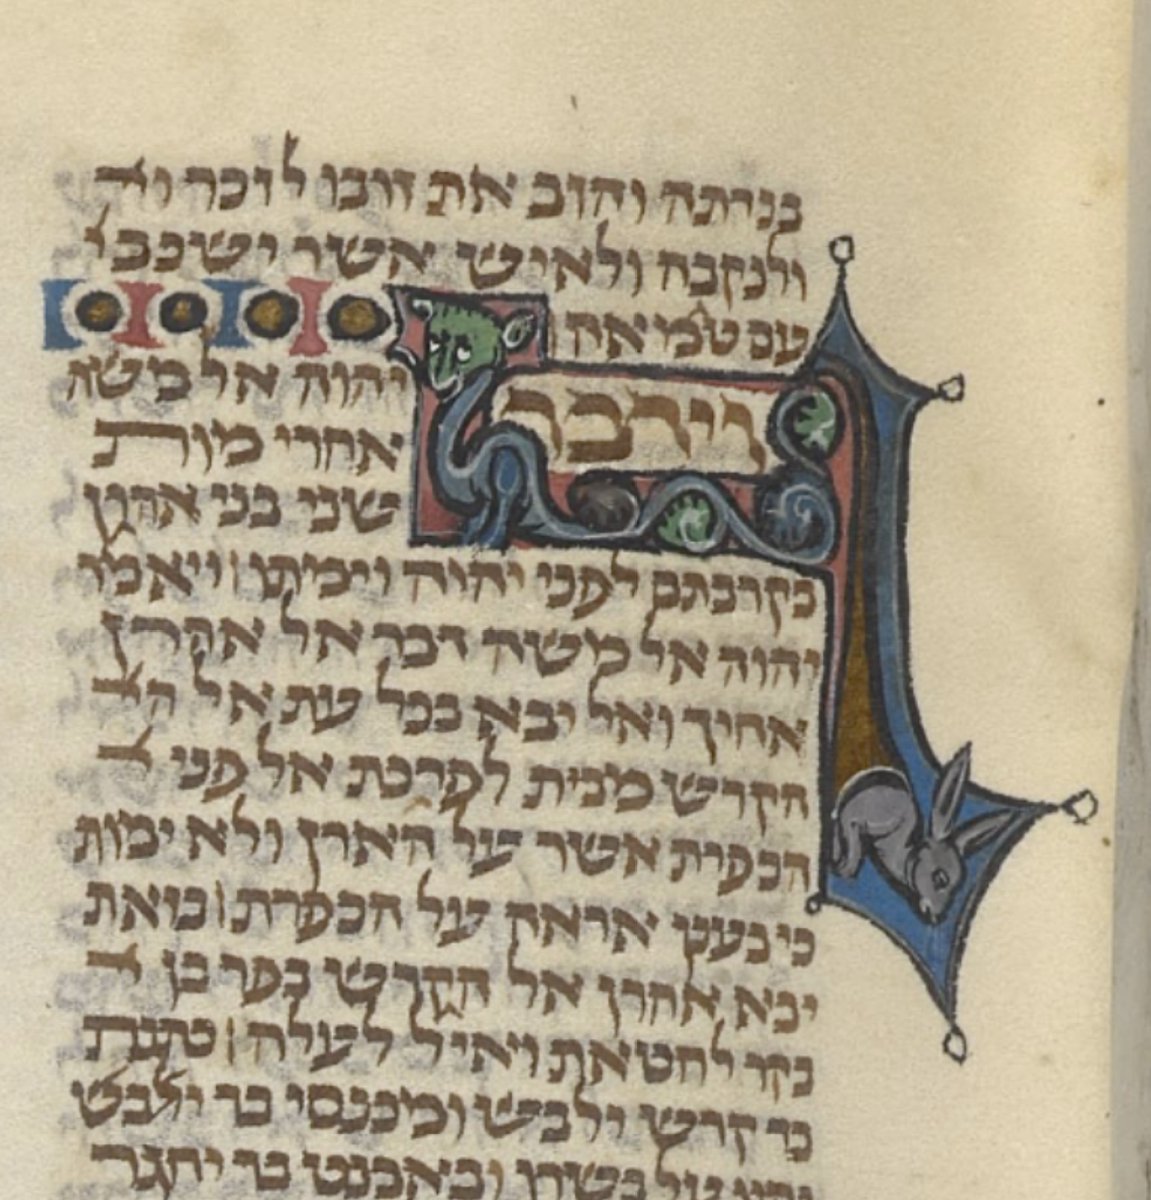 בנדתה והזב את זובו לזכר
ולנקבה ולאיש אשר ישכב
עם טמאה
וידבר יהוה אל משה
אחרי מות
שני בני אהרן
בקרבתם לפני יהוה וימתו׀ ויאמר
יהוה אל משה דבר אל אהרן
אחיך ואל יבא בכל עת אל
הקדש מבית לפרכת אל פני
הכפרת אשר על הארן ולא ימות
כי בענן אראה על הכפרת׀ בזאת
יבא אהרן אל הקדש בפר בן
בקר לחטאת ואיל לעלה׀ כתנת
בד קדש ילבש ומכנסי בד ילבש
יהיו על בשרו ובאבנט בד יחגר